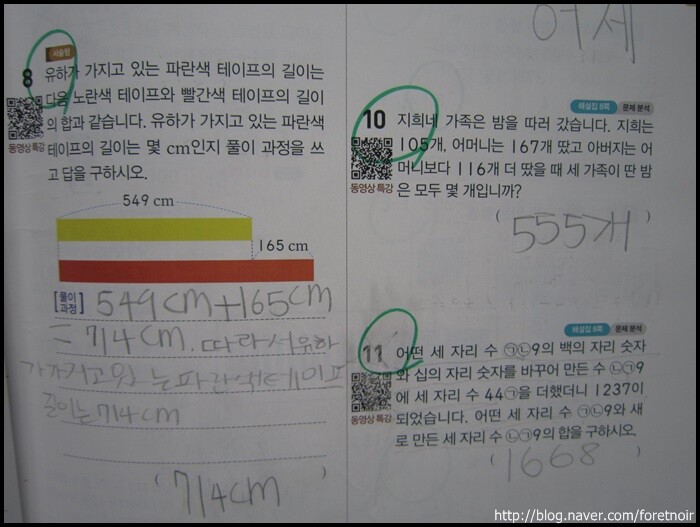 서술형
8
유하가 가지고 있는 파란색 테이프의 길이는
다음 노란색 테이프와 빨간색 테이프의 길이
의 합과 같습니다. 유하가 가지고 있는 파란색
동영상 특강
테이프의 길이는 몇 cm인지 풀이 과정을 쓰
고 답을 구하시오.
549 cm
165 cm
[풀이 과정] 549cm+165cm
=714cm. 따라서 유하
가 가지고 있는 파란색 테이프
길이는 714cm
(714cm)
어세
해설집 8쪽 문제 분석
10
지희네 가족은 밤을 따러 갔습니다. 지희는
105개, 어머니는 167개 땄고 아버지는 어
머니보다 116개 더 땄을 때 세 가족이 딴 밤
동영상 특강
은 모두 몇 개입니까?
(555개)
해설집 8쪽 문제 분석
11
어떤 세 자리 수 ㉠㉡9의 백의 자리 숫자
와 십의 자리 숫자를 바꾸어 만든 수 ㉡㉠9
에 세 자리 수 44㉠을 더했더니 1237이
되었습니다. 어떤 세 자리 수 ㉠㉡9와 새
동영상 특강
로 만든 세 자리 수 ㉡㉠9의 합을 구하시오.
(1668)
http://blog.naver.com/foretnoir